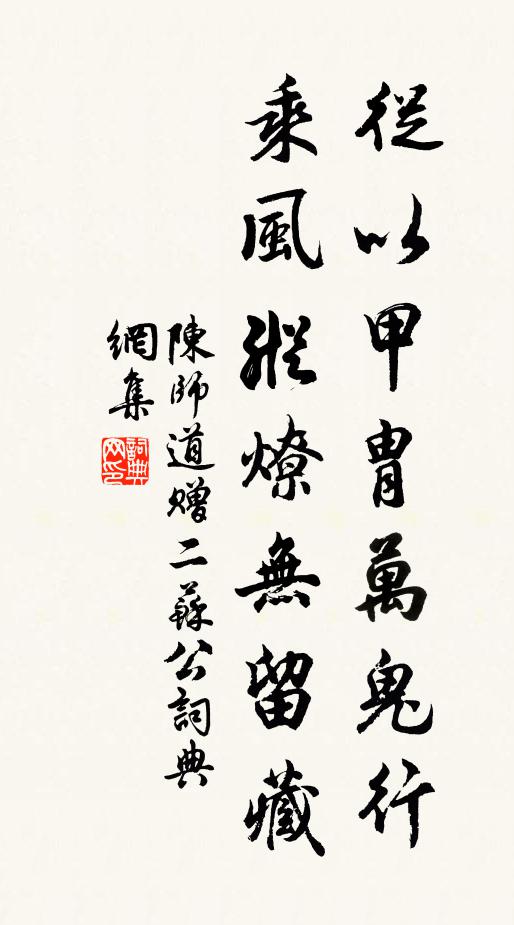 從以甲冑萬鬼行
乘風縱燎無留藏
陳師道贈二蘇公詞典
網集
詞典
网印